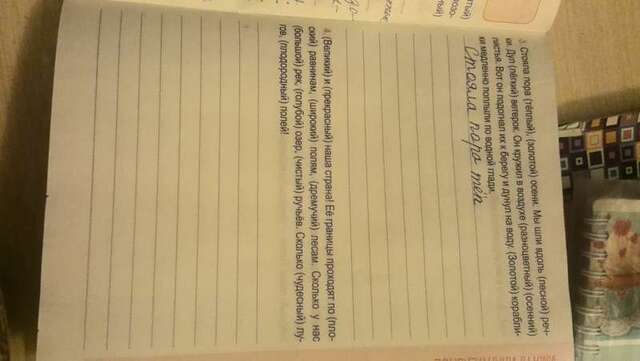 3. Стояла пора (тёплый), (золотой) осени. Мы шли вдоль (лесной) реч-
ки. Дул (лёгкий) ветерок. Он кружил в воздухе (разноцветный) (осенний)
листья. Вот он подогнал их к берегу и дунул на воду. (Золотой) корабли-
ки медленно поплыли по водной глади.
Стояла пора тёп
4. (Великий) и (прекрасный) наша страна! Её границы проходят по (пло-
ский) равнинам, (широкий) полям, (дремучий) лесам. Сколько у нас
(большой) рек, (голубой) озёр, (чистый) ручьёв. Сколько (чудесный) лу-
гов, (плодородный) полей!